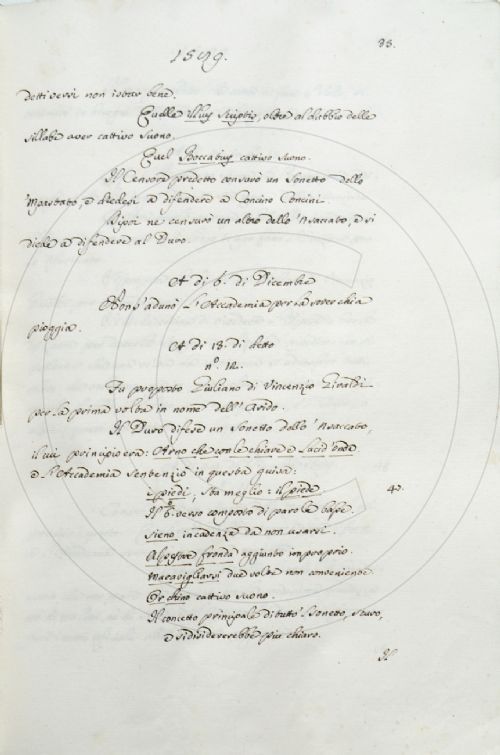 33.
1599.
detti versi non istesse bene.
Quelle illius scriptis, oltre al dubbio delle
sillabe aver cattivo suono.
Quel Boccabus cattivo suono.
Il Censore predetto censurò un Sonetto dello
'Mpastato, e diedesi a difendere a Concino Concini
Dipoi ne censurò un altro dello 'Nsaccato, e si
diede a difendere al Duro.
A dì 6. di Dicembre
Non s'adunò L'Accademia per la soverchia
pioggia.
A dì 13. di detto
n.º 12.
Fu proposto Giuliano di Vincenzio Giraldi
per la prima volta in nome dell'Arido.
Il Duro difese un Sonetto dello 'Nsaccato,
il cui principio era: Arno che con le chiare e lucid'onde
e L'Accademia sentenziò in questa guisa:
i piedi, sta meglio: il piede. 4.
Il 6.º verso composto di parole basse.
sieno, in cadenza da non usarsi.
fronda aggiunto improprio.
Maravigliarsi due volte non conveniente.
Or chino cattivo suono.
Il concetto principale di tutto 'l Sonetto, scuro,
e si disidererebbe più chiaro.
Il